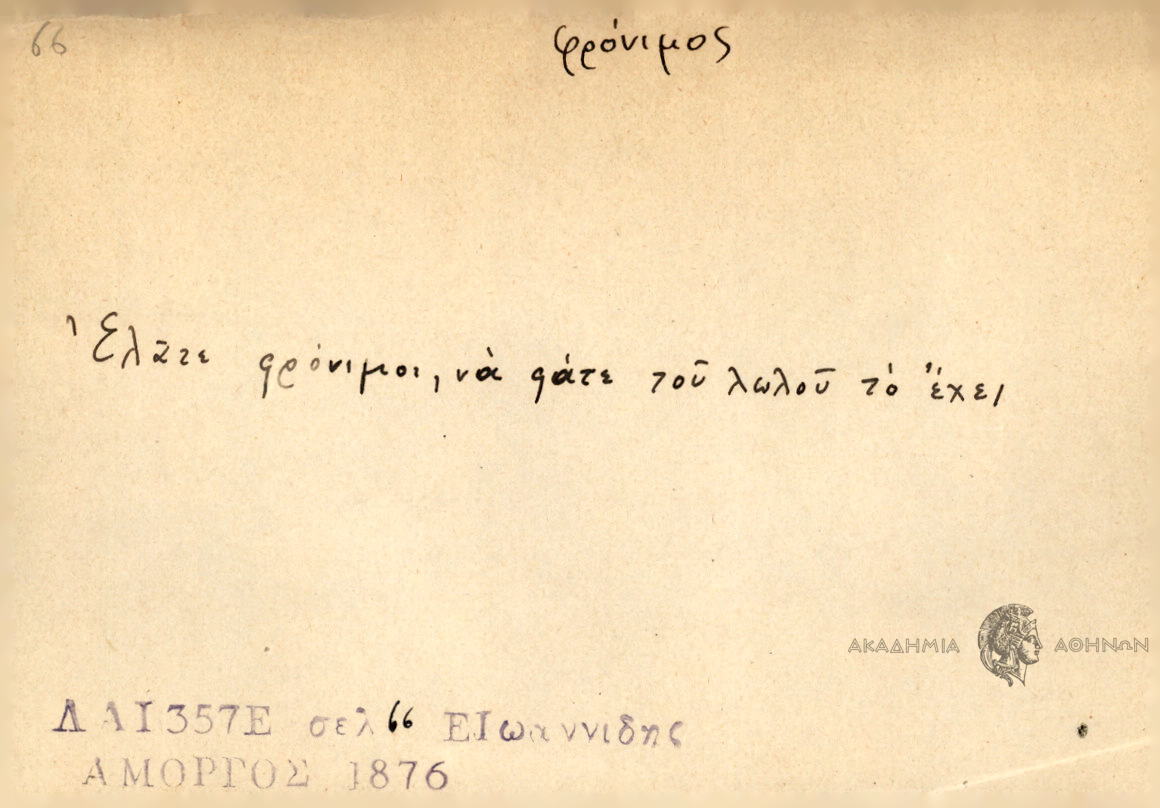 66
φρόνιμος
Ἐλᾶτε φρόνιμοι, νὰ φάτε τοῦ λωλοῦ τὸ ἔχει
ΑΚΑΔΗΜΙΑ ΑΘΗΝΩΝ
ΛΑΙ357Ε σελ 66 ΕΙωαννιδης
ΑΜΟΡΓΟΣ 1876